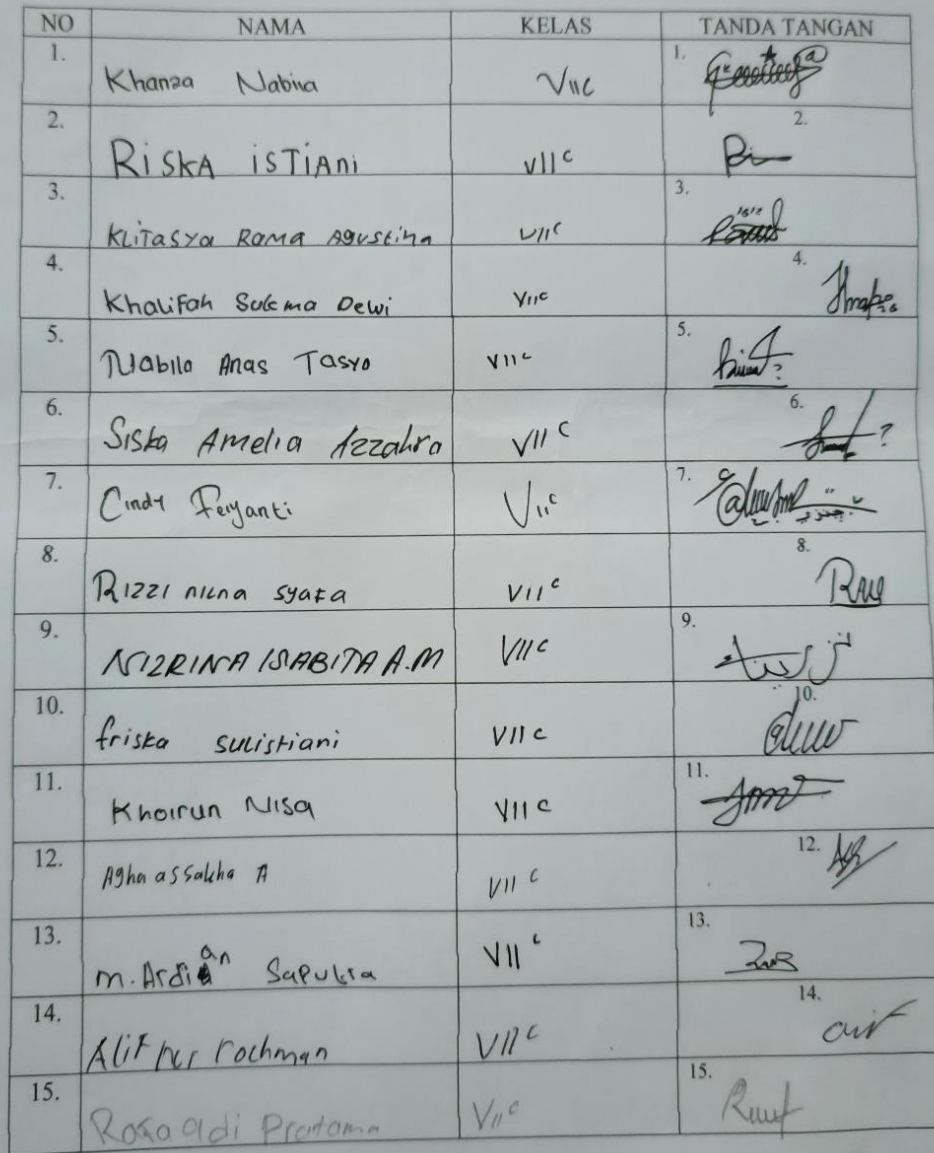 NO NAMA KELAS TANDA TANGAN
1. Khanza Nabila VIIC 1.
2. RiSKA iSTiAni VII C 2.
3. KLiTasya Rama Agustina VII C 3.
4. Khalifah Sukma Dewi VII C 4.
5. Nabila Anas Tasya VII C 5.
6. Siska Amelia Azzahra VII C 6.
7. Cindy Feryanti VII C 7.
8. Rizzi nicna syafa VII C 8.
9. NIZRINA ISABITA A.M VII C 9.
10. friska sulistiani VII C 10.
11. Khoirun Nisa VII C 11.
12. Agha assakha A VII C 12.
13. M. Ardian Saputra VII C 13.
14. Alif nur rochman VII C 14.
15. adi Pratama VII C 15.